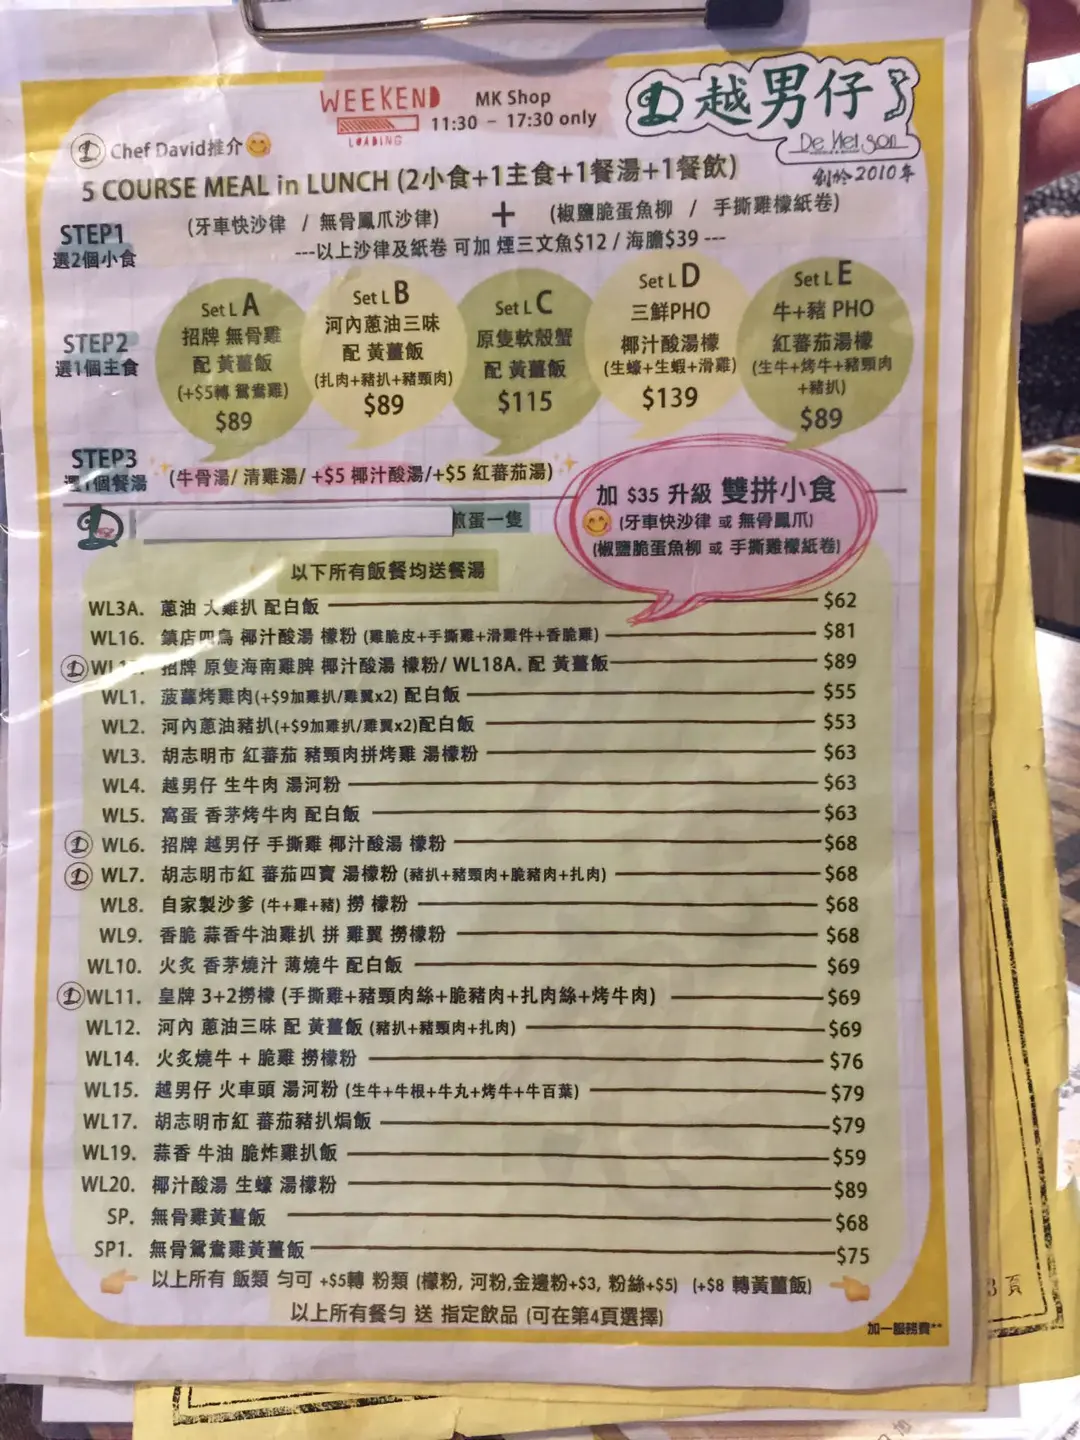 WEEKEND
LOADING
MK Shop
11:30 - 17:30 only
越男仔
De Viet Son
創於2010年
Chef David推介
5 COURSE MEAL in LUNCH (2小食+1主食+1餐湯+1餐飲)
STEP1
選2個小食
(牙車快沙律 / 無骨鳳爪沙律) + (椒鹽脆蛋魚柳 / 手撕雞檬紙卷)
---以上沙律及紙卷 可加 煙三文魚$12 / 海膽$39 ---
STEP2
選1個主食
Set L A
招牌 無骨雞
配 黃薑飯
(+$5轉 鴛鴦雞)
$89
Set L B
河內蔥油三味
配 黃薑飯
(扎肉+豬扒+豬頸肉)
$89
Set L C
原隻軟殼蟹
配 黃薑飯
$115
Set L D
三鮮PHO
椰汁酸湯檬
(生蠔+生蝦+滑雞)
$139
Set L E
牛+豬 PHO
紅蕃茄湯檬
(生牛+烤牛+豬頸肉
+豬扒)
$89
STEP3
選1個餐湯
(牛骨湯/ 清雞湯/ +$5 椰汁酸湯/+$5 紅蕃茄湯)
加 $35 升級 雙拼小食
(牙車快沙律 或 無骨鳳爪)
(椒鹽脆蛋魚柳 或 手撕雞檬紙卷)
煎蛋一隻
以下所有飯餐均送餐湯
WL3A. 蔥油 大雞扒 配白飯 $62
WL16. 鎮店四鳥 椰汁酸湯 檬粉 (雞脆皮+手撕雞+滑雞件+香脆雞) $81
招牌 原隻海南雞脾 椰汁酸湯 檬粉/ WL18A. 配 黃薑飯 $89
WL1. 菠蘿烤雞肉(+$9加雞扒/雞翼x2) 配白飯 $55
WL2. 河內蔥油豬扒(+$9加雞扒/雞翼x2)配白飯 $53
WL3. 胡志明市 紅蕃茄 豬頸肉拼烤雞 湯檬粉 $63
WL4. 越男仔 生牛肉 湯河粉 $63
WL5. 窩蛋 香茅烤牛肉 配白飯 $63
WL6. 招牌 越男仔 手撕雞 椰汁酸湯 檬粉 $68
WL7. 胡志明市紅 蕃茄四寶 湯檬粉 (豬扒+豬頸肉+脆豬肉+扎肉) $68
WL8. 自家製沙爹 (牛+雞+豬) 撈 檬粉 $68
WL9. 香脆 蒜香牛油雞扒 拼 雞翼 撈檬粉 $68
WL10. 火炙 香茅燒汁 薄燒牛 配白飯 $69
WL11. 皇牌 3+2撈檬 (手撕雞+豬頸肉絲+脆豬肉+扎肉絲+烤牛肉) $69
WL12. 河內 蔥油三味 配 黃薑飯 (豬扒+豬頸肉+扎肉) $69
WL14. 火炙燒牛 + 脆雞 撈檬粉 $76
WL15. 越男仔 火車頭 湯河粉 (生牛+牛根+牛丸+烤牛+牛百葉) $79
WL17. 胡志明市紅 蕃茄豬扒焗飯 $79
WL19. 蒜香 牛油 脆炸雞扒飯 $59
WL20. 椰汁酸湯 生蠔 湯檬粉 $89
SP. 無骨雞黃薑飯 $68
SP1. 無骨鴛鴦雞黃薑飯 $75
以上所有 飯類 勻可 +$5轉 粉類 (檬粉, 河粉,金邊粉+$3, 粉絲+$5) (+$8 轉黃薑飯)
以上所有餐勻 送 指定飲品 (可在第4頁選擇)
加一服務費**
3 頁